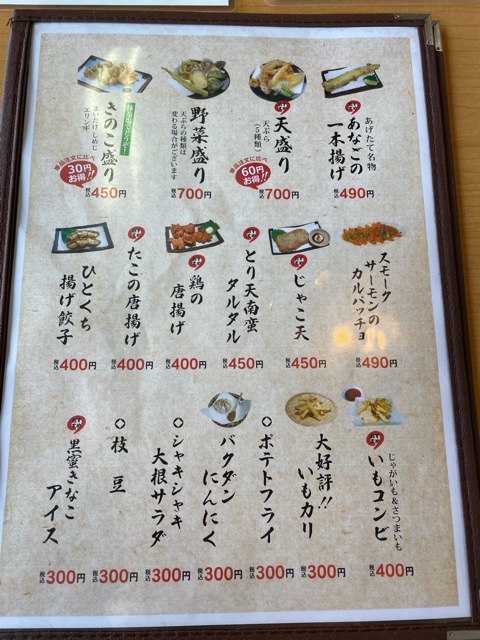 あげたて名物
あなごの
一本揚げ
税込490円
天盛り
天ぷら
(5種類)
単品注文に比べ
60円
お得!!
税込700円
野菜盛り
天ぷらの種類は
変わる場合がございます
税込700円
きのこ盛り
まいたけ しめじ
エリンギ
単品注文に比べ
30円
お得!!
税込450円
スモーク
サーモンの
カルパッチョ
税込490円
じゃこ天
税込450円
とり天南蛮
タルタル
税込450円
鶏の
唐揚げ
税込400円
たこの唐揚げ
税込400円
ひとくち
揚げ餃子
税込400円
じゃがいも&さつまいも
いもコンビ
税込400円
大好評!!
いもカリ
税込300円
ポテトフライ
税込300円
バクダン
にんにく
税込300円
シャキシャキ
大根サラダ
税込300円
枝豆
税込300円
黒蜜きなこ
アイス
税込300円